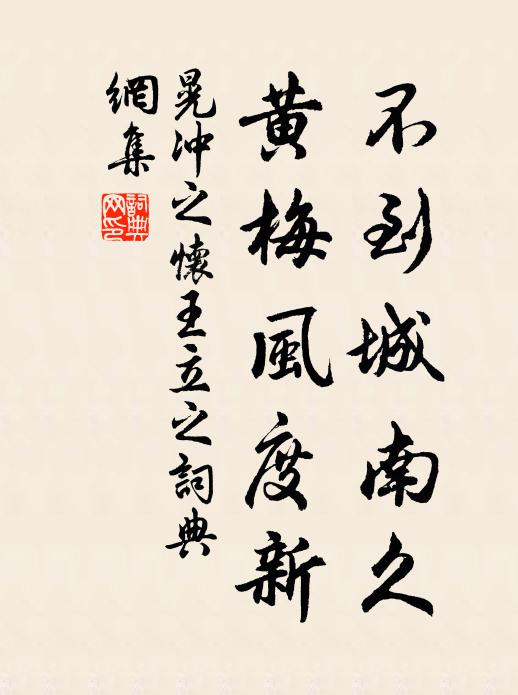 不到城南久
黄梅風度新
晁冲之懷王立之詞典
網集
詞典
网印